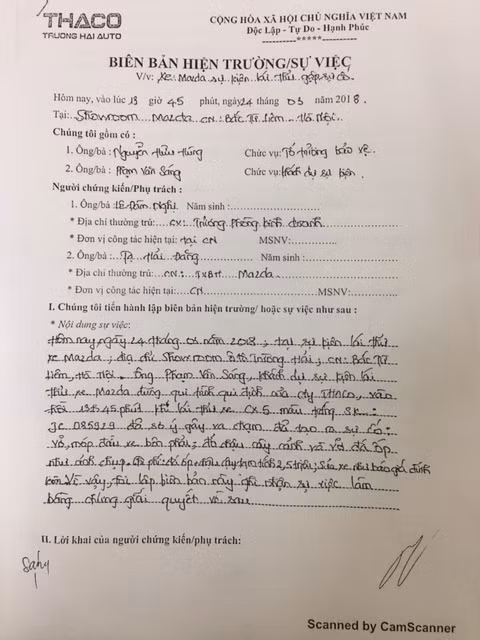 THACO
TRUONG HAI AUTO
CỘNG HÒA XÃ HỘI CHỦ NGHĨA VIỆT NAM
Độc Lập - Tự Do - Hạnh Phúc
----------*****----------
BIÊN BẢN HIỆN TRƯỜNG/SỰ VIỆC
V/v: Xe Mazda sự kiện lái thử gặp sự cố.
Hôm nay, vào lúc 13 giờ 45 phút, ngày 24 tháng 03 năm 2018.
Tại: Showroom Mazda CN: Bắc Từ Liêm - Hà Nội.
Chúng tôi gồm có :
1. Ông/bà : Nguyễn Hữu Hùng Chức vụ: Tổ trưởng bảo vệ.
2. Ông/bà : Phạm Văn Sáng Chức vụ: Khách dự sự kiện.
Người chứng kiến/Phụ trách :
1. Ông/bà : Lê Đàm Nghị Năm sinh :
* Địa chỉ thường trú: CX: Trưởng phòng kinh doanh
* Đơn vị công tác hiện tại: tại CN MSNV:
2. Ông/bà : Tạ Hải Đăng Năm sinh :
* Địa chỉ thường trú: CN: TXBH Mazda
* Đơn vị công tác hiện tại: CN MSNV:
I. Chúng tôi tiến hành lập biên bản hiện trường/ hoặc sự việc như sau :
* Nội dung sự việc:
Hôm nay, ngày 24 tháng 03 năm 2018, tại sự kiện lái thử
xe Mazda, địa chỉ Showroom ô tô Trường Hải, CN: Bắc Từ
Liêm, Hà Nội. Ông Phạm Văn Sáng, khách dự sự kiện lái
thử xe Mazda đúng qui trình qui định của cty THACO, vào
hồi 13h45 phút khi lái thử xe CX5 màu trắng SK:
JC 085929 đã sơ ý gây va chạm đã tạo ra sự cố:
vỡ, móp đầu xe bên phải; đổ chậu cây cảnh và vỡ đá ốp
như ảnh chụp. Chi phí: đá ốp, chậu cây tạm tính 2,5 triệu; sửa xe như báo giá đính
kèm Vì vậy, tôi lập biên bản này ghi nhận sự việc làm
bằng chứng giải quyết về sau
II. Lời khai của người chứng kiến/phụ trách:
Scanned by CamScanner